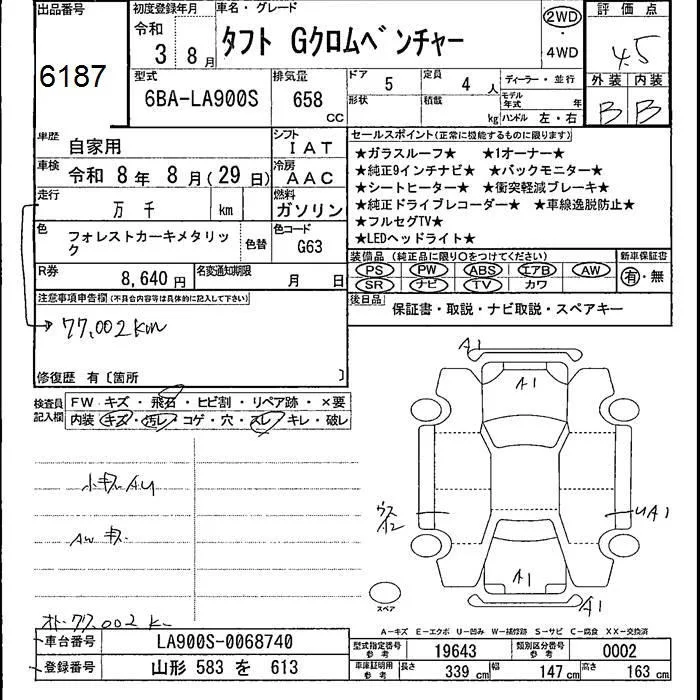 出品番号
6187
初度登録年月
令和 3 8月
車名・グレード
タフト Gクロムベンチャー
2WD
・
4WD
評価点
4.5
外装 内装
B B
型式
6BA-LA900S
排気量
658 CC
ドア 5
形状
定員 4人
積載 kg
ディーラー・並行
モデル年式 年
ハンドル 左・右
車歴 自家用
シフト IAT
車検 令和 8年 8月(29日)
冷房 AAC
走行 万 千 km
燃料 ガソリン
色 フォレストカーキメタリック
色替
色コード G63
R券 8,640円
名変通知期限 月 日
セールスポイント(正常に機能するものに限ります)
★ガラスルーフ★ ★1オーナー★
★純正9インチナビ★ ★バックモニター★
★シートヒーター★ ★衝突軽減ブレーキ★
★純正ドライブレコーダー★ ★車線逸脱防止★
★フルセグTV★
★LEDヘッドライト★
装備品 (純正品に限り○をつけてください)
PS PW ABS エアB AW
SR ナビ TV カワ
新車保証書
有・無
後日品 保証書・取説・ナビ取説・スペアキー
注意事項申告欄(不具合内容等は具体的に記入して下さい)
77,002km
修復歴 有〔箇所 〕
検査員記入欄
FW キズ・飛石・ヒビ割・リペア跡・×要
内装 キズ・汚レ・コゲ・穴・スレ・キレ・破レ
小キズAU
AWキズ
オドー77,002k
A1
A1
ウスイン
UA1
A1
A1
スペア
A-キズ E-エクボ U-凹み W-補修跡 S-サビ C-腐食 XX-交換済
車台番号 LA900S-0068740
登録番号 山形 583 を 613
型式指定番号 参考 19643
類別区分番号 参考 0002
車庫証明用 参考 長さ 339 cm 幅 147 cm 高さ 163 cm